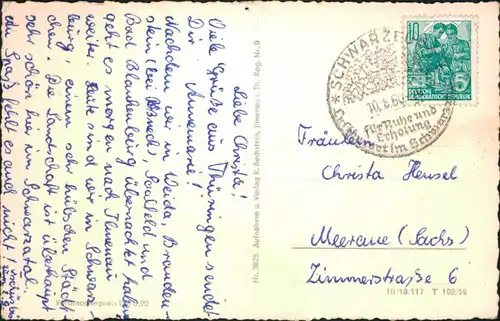 Liebe Christa!
Viele Grüße aus Thüringen sendet
Dir Annemarie!
Nachdem wir in Weida, Branden-
stein (bei Pößneck), Saalfeld und
Bad Blankenburg übernachtet haben
geht es morgen nach Ilmenau
weiter. Heute sind wir in Schwarz-
burg, einem sehr hübschen Städt-
chen. Die Landschaft ist überhaupt
sehr schön hier im Schwarzatal.
An Spaß fehlt es auch nicht!
Verbraucherpreis DM 0,20
Nr. 3825 Aufnahme u. Verlag R. Bechstein, Ilmenau i. Th. Reg. Nr. 9
SCHWARZB
10.8.60
Für Ruhe und
Erholung
10
DEUTSCHE
DEMOKRATISCHE REPUBLIK
Fräulein
Christa Hensel
Meerane (Sachs)
Zimmerstraße 6
III/18/117 T 102/59